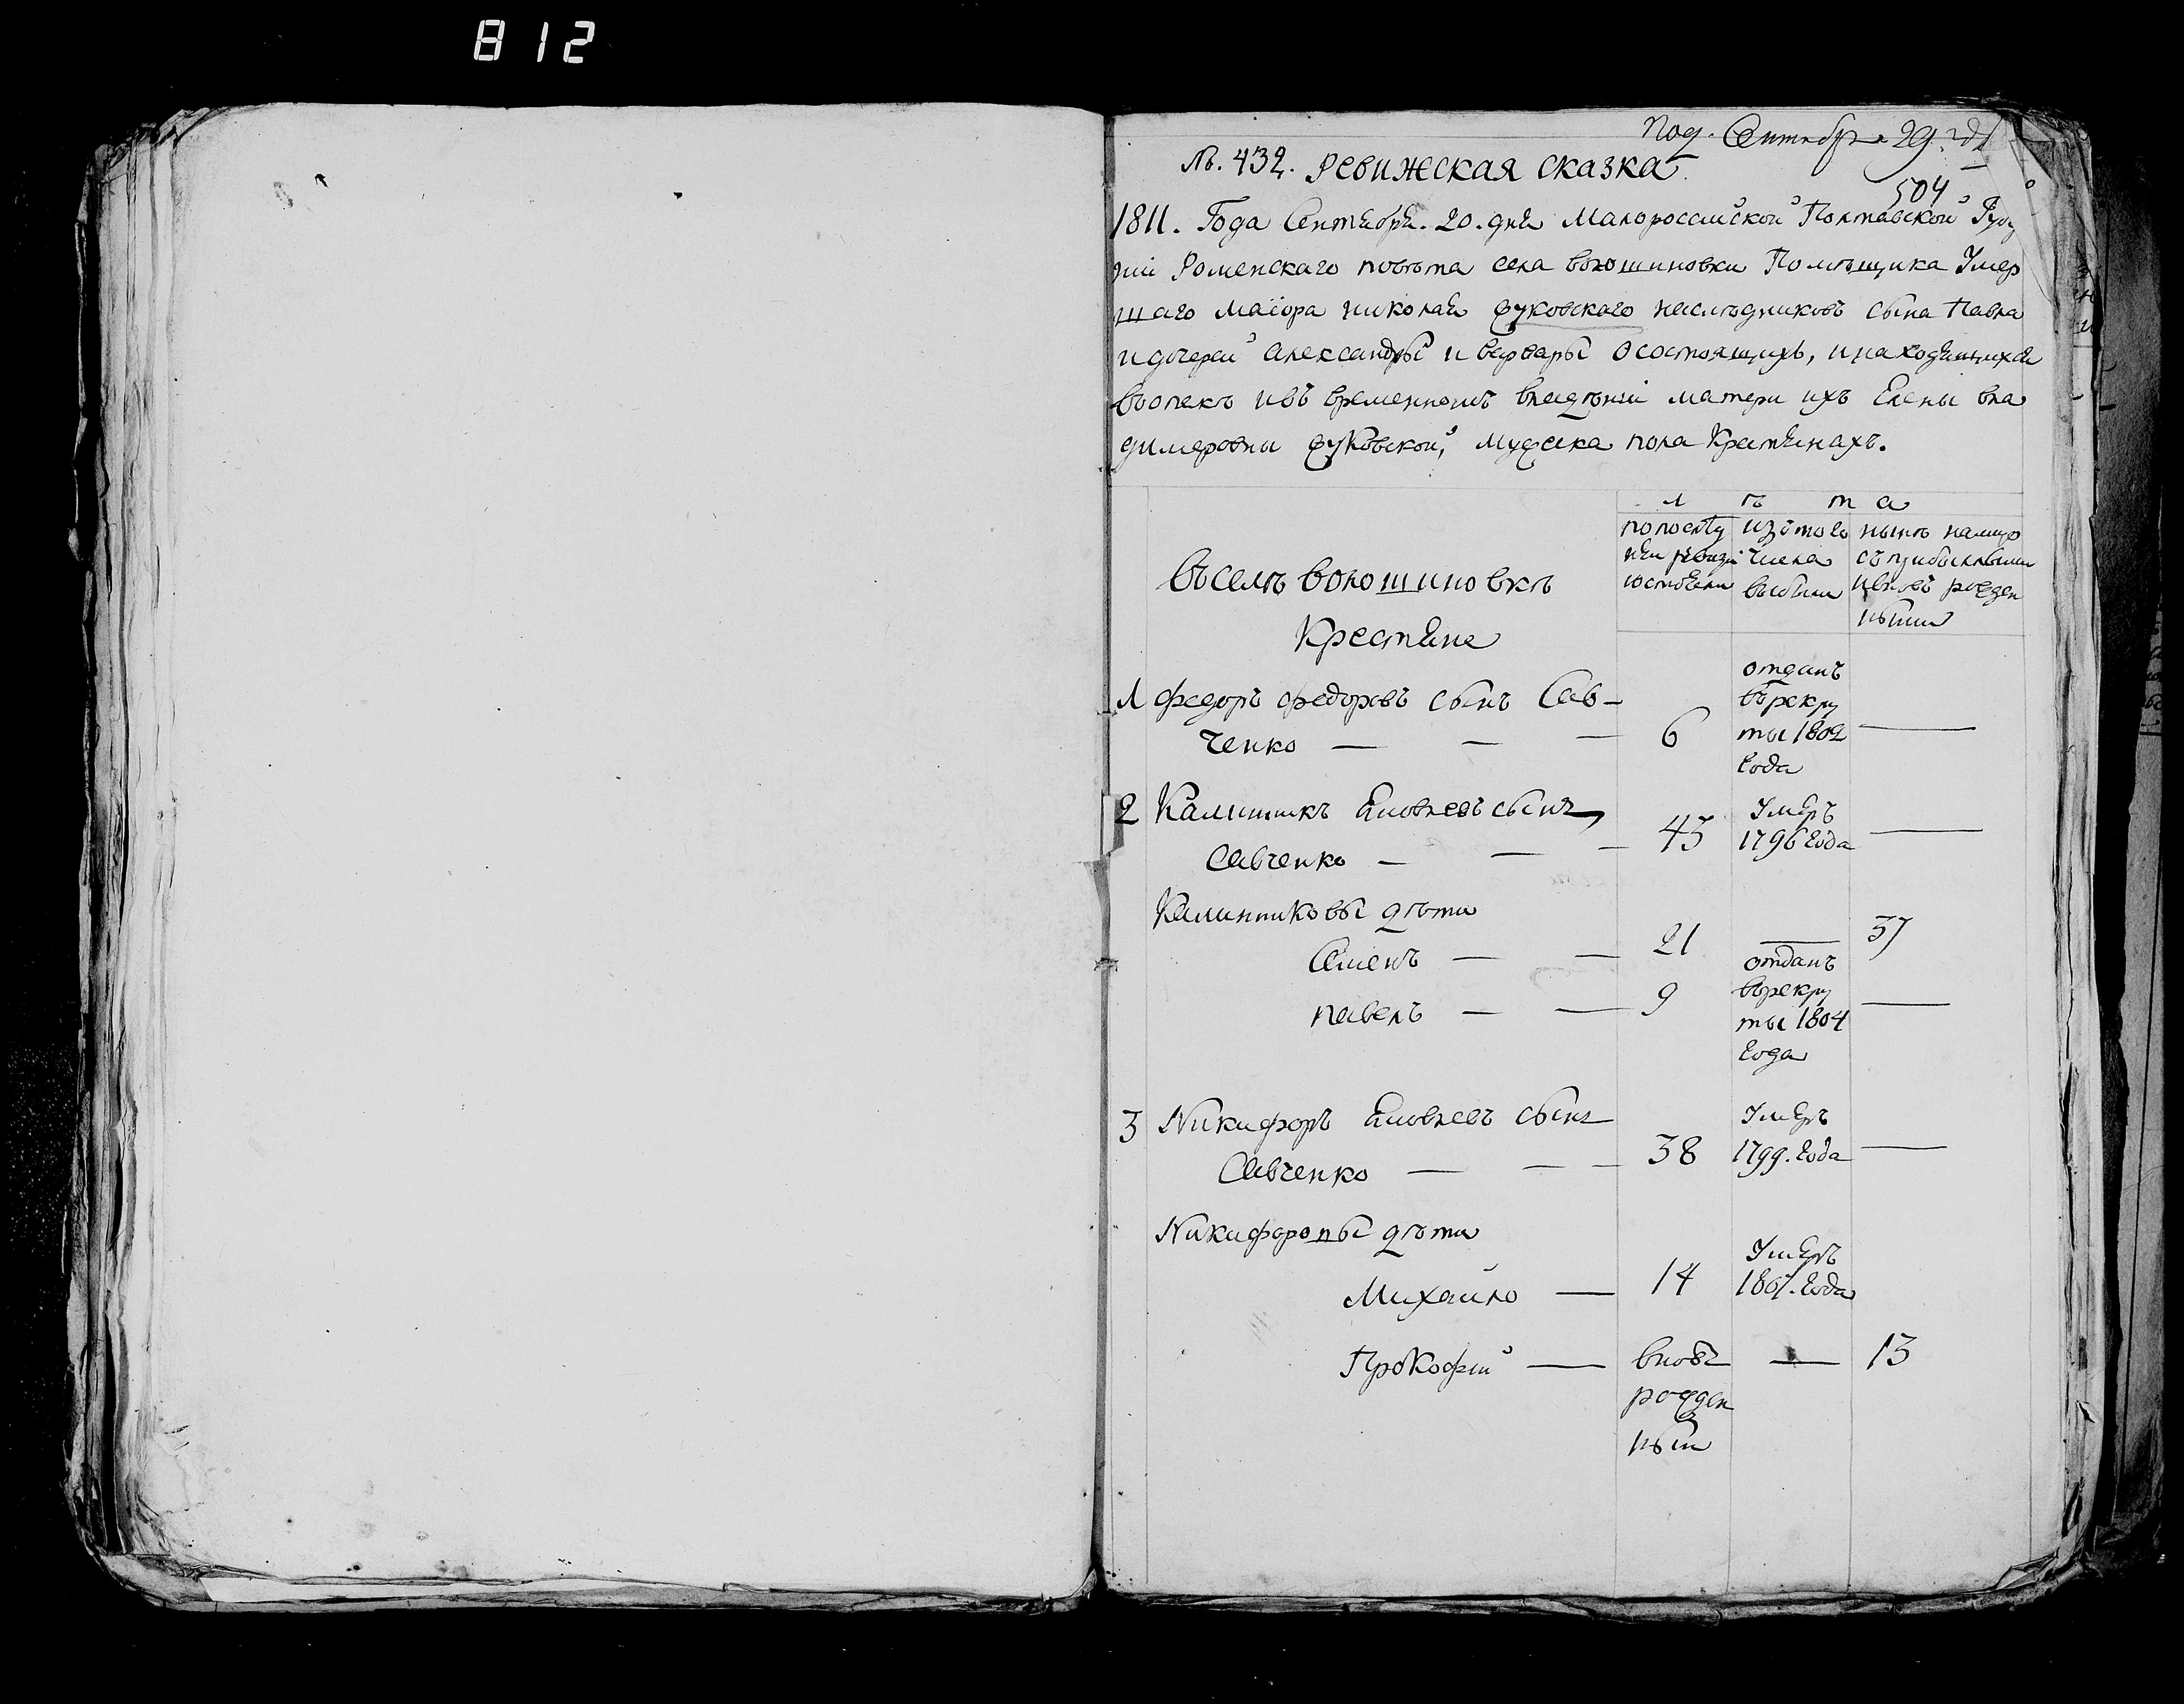 812
Под. Сентября 29. д
№. 432. Ревижская сказка
504
1811. Года Сентября. 20. дня Малороссийской Полтавской Губер
нии Роменскаго повѣта села волошиновки Помѣщика Умер
шаго Маіора николая фуковскаго наслѣдниковъ сына Павла
и дочерей александры и варвары О состоящихъ, и находящихся
въ опекѣ и въ временномъ владѣніи матери ихъ Елены вла
димеровны фуковской, мужеска пола Крестянахъ.
л ѣ т а
въ селѣ волошиновкѣ
Крестяне
по послѣд
ней ревизіи
состояли
изъ того
числа
выбыли
нынѣ налицо
съ прибылыми
и вновь рожден
ными
1 федоръ федоровъ сынъ Сав-
ченко — — — 6
отданъ
въ рекру
ты 1802
года
—
2 Калинникъ Яковлевъ сынъ
Савченко — — — 43
Умеръ
1796 года
—
Калинниковы дѣти
Семенъ — — 21 — 37
павелъ — — 9
отданъ
въ рекру
ты 1804
года
—
3 Никифоръ Яковлевъ сынъ
Савченко — — — 38
Умеръ
1799. года
—
Никифоровы дѣти
Михайло — 14
Умеръ
1807. года
Прокофий — вновь — 13
рожден
ный